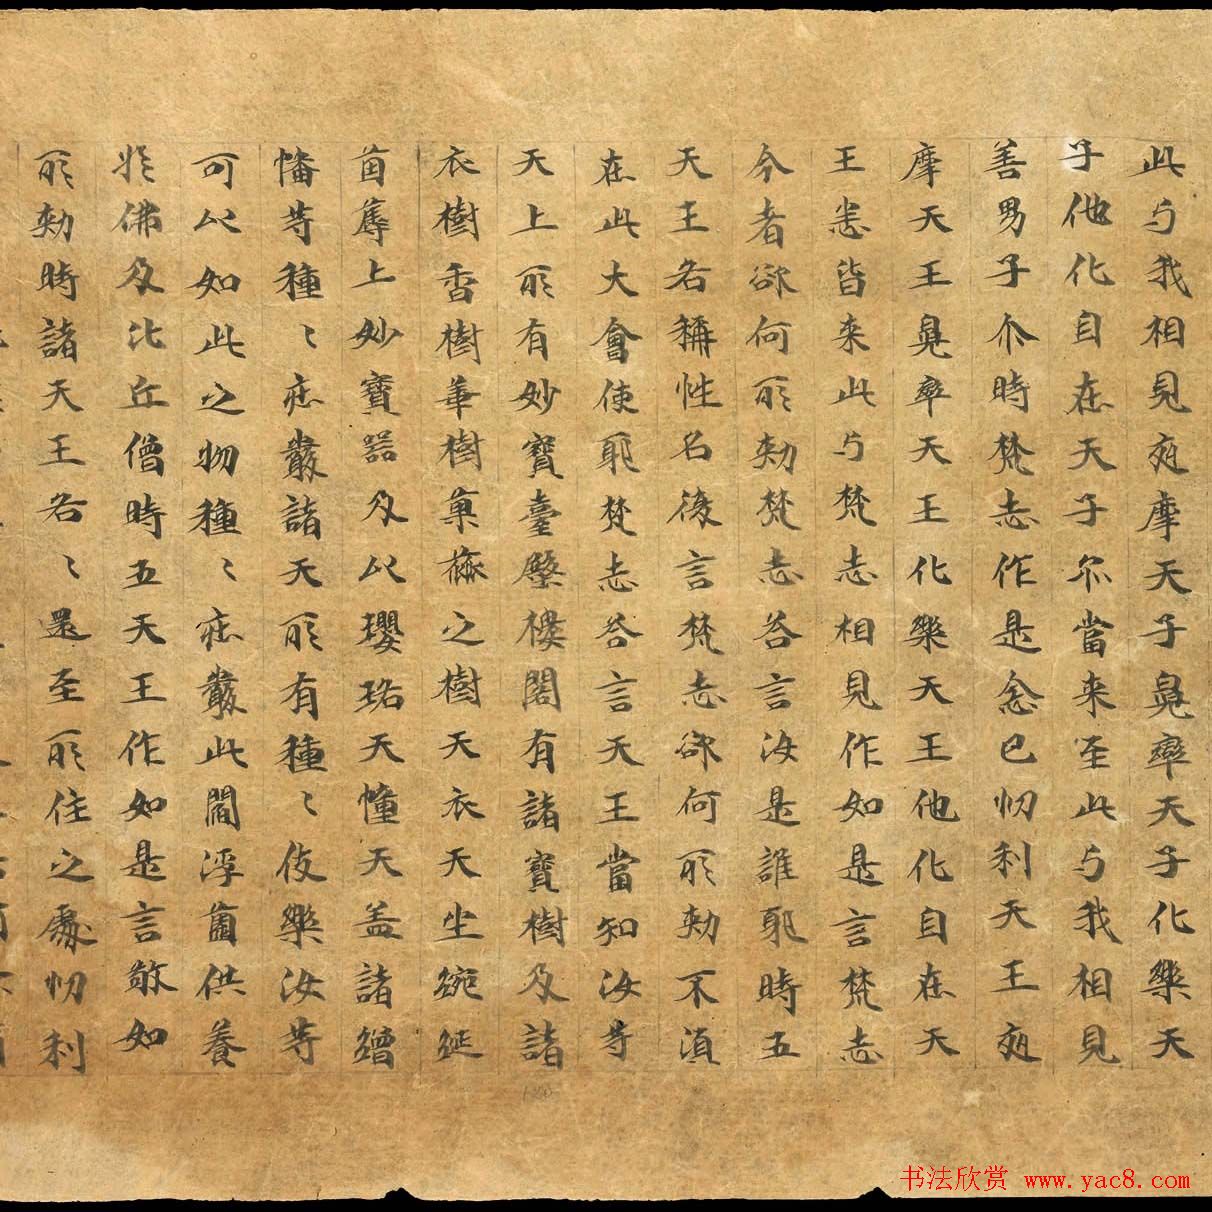 此与我相見夜摩天子兜率天子化樂天
子他化自在天子尔當来至此与我相見
善男子尒時梵志作是念已忉利天王夜
摩天王兜率天王化樂天王他化自在天
王悉皆来此与梵志相見作如是言梵志
今者欲何所勑梵志荅言汝是誰耶時五
天王各稱性名後言梵志欲何所勑不湏
在此大會使耶梵志荅言天王當知汝等
天上所有妙寶臺殿樓閣有諸寶樹及諸
衣樹香樹華樹菓蓏之樹天衣天坐綩綖
茵蓐上妙寶器及以瓔珞天幢天盖諸繒
幡等種〻庄嚴諸天所有種〻伎樂汝等
可以如此之物種〻庄嚴此閻浮薗供養
於佛及比丘僧時五天王作如是言敬如
所勑時諸天王各〻還至所住之處忉利
书法欣赏 www.yac8.com